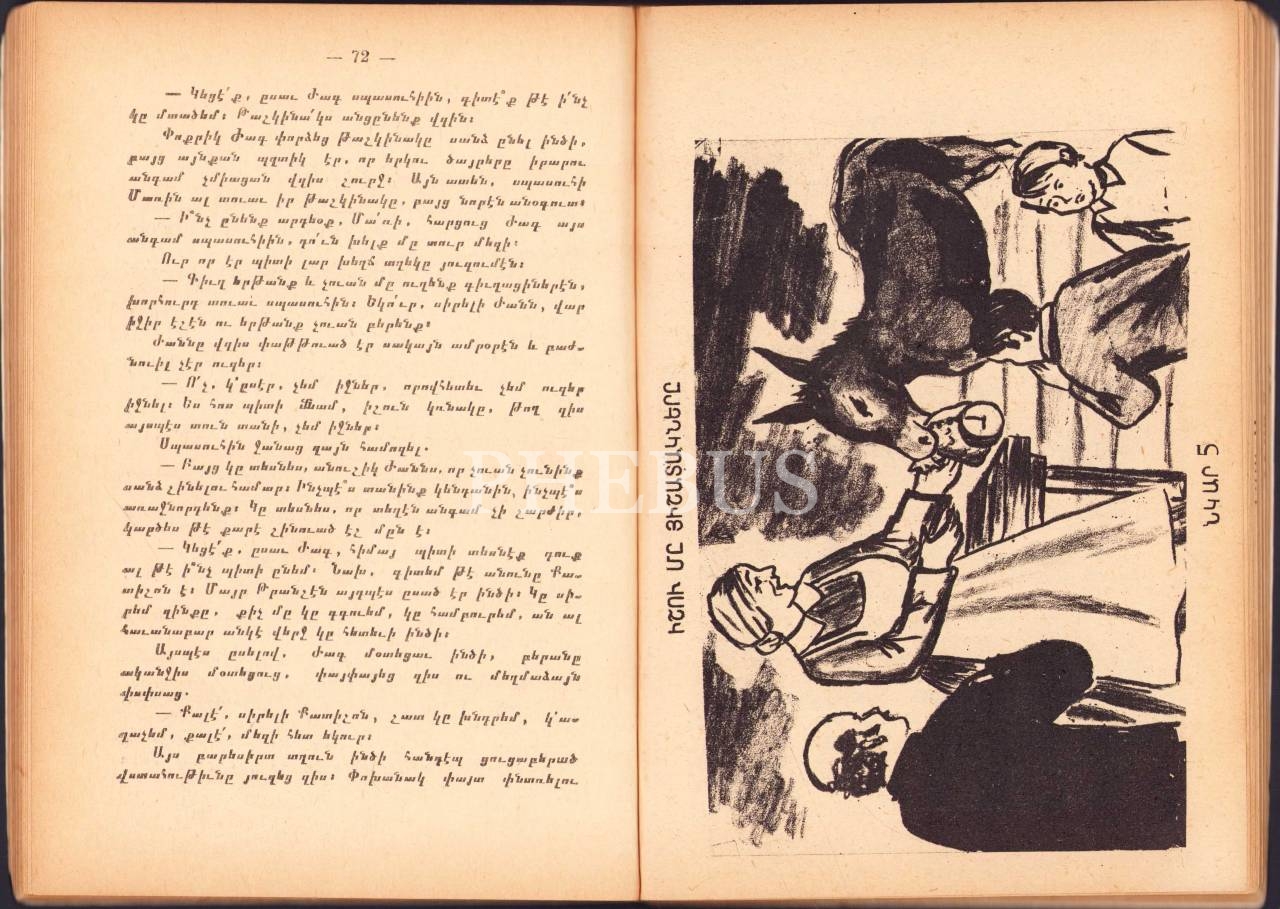 — 72 —
— Կեցէ՛ք, ըսաւ Ժագ սպասուհիին, գիտէ՞ք թէ ի՛նչ
կը մտածեմ։ Թաշկինա՛կս անցընենք վզին։
Փոքրիկ Ժագ փորձեց թաշկինակը սանձ ընել ինծի,
բայց այնքան պզտիկ էր, որ երկու ծայրերը իրարու
անգամ չմիացան վզիս շուրջ։ Այն ատեն, սպասուհի
Մառին ալ տուաւ իր թաշկինակը, բայց նորէն անօգուտ։
— Ի՞նչ ընենք արդեօք, Մա՛ռի, հարցուց Ժագ այս
անգամ սպասուհիին, դո՛ւն խելք մը տուր մեզի։
Ուր որ էր պիտի լար խեղճ տղեկը յուզումէն։
— Գիւղ երթանք և չուան մը ուզենք գիւղացիներէն,
խորհուրդ տուաւ սպասուհին։ Եկո՛ւր, սիրելի Ժանն, վար
իջիր էշէն ու երթանք չուան բերենք։
Ժաննը վզիս փաթթուած էր սակայն ամրօրէն և բաժ-
նուիլ չէր ուզեր։
— Ո՛չ, կ՚ըսէր, չեմ իջներ, որովհետեւ չեմ ուզեր
իջնել։ Ես հոս պիտի մնամ, իշուն կռնակը, թող զիս
այսպէս տուն տանի, չեմ իջներ։
Սպասուհին ջանաց զայն համոզել.
— Բայց կը տեսնես, անուշիկ Ժաննս, որ չուան չունինք
սանձ շինելու համար։ Ինչպէ՞ս տանինք կենդանին, ինչպէ՞ս
առաջնորդենք։ Կը տեսնես, որ տեղէն անգամ չի շարժիր,
կարծես թէ քարէ շինուած էշ մըն է։
— Կեցէ՛ք, ըսաւ Ժագ, հիմայ պիտի տեսնէք դուք
ալ թէ ի՛նչ պիտի ընեմ։ Նախ, գիտեմ թէ անունը Քա-
տիշոն է։ Մայր Թրանշէն այդպէս ըսած էր ինծի։ Կը սի-
րեմ զինքը, քիչ մը կը գգուեմ, կը համբուրեմ, ան ալ
հաւանաբար անկէ վերջ կը հետեւի ինծի։
Այսպէս ըսելով, Ժագ մօտեցաւ ինծի, բերանը
ականջիս մօտեցուց, փայփայեց զիս ու մեղմաձայն
փսփսաց.
— Քալէ՛, սիրելի Քատիշոն, շատ կը խնդրեմ, կ՚ա-
ղաչեմ, քալէ՛, մեզի հետ եկուր։
Այս բարեսիրտ տղուն ինծի հանդէպ ցուցաբերած
վստահութիւնը յուզեց զիս։ Փոխանակ փայտ փնտռելու
ԱՅՍ
ԻՇՈՒ ՄԸ ՅԻՇԱՏԱԿՆԵՐԸ
ՆԿԱՐ 5
PHEBUS